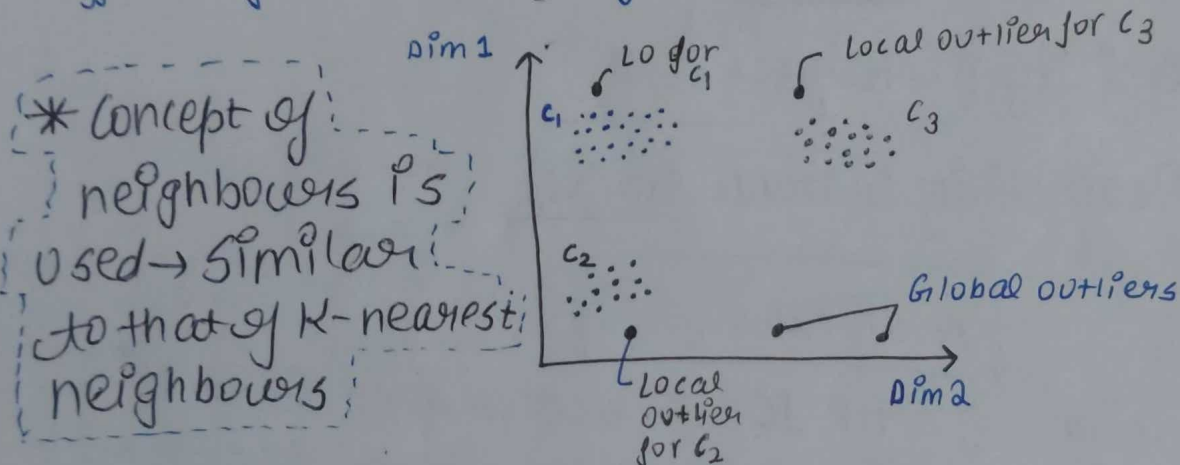 * Concept of
neighbours is
used → Similar
to that of K-nearest
neighbours
Dim 1
LO for
C1
Local outlier for C3
C1
C3
C2
Global outliers
Local
outlier
for C2
Dim 2